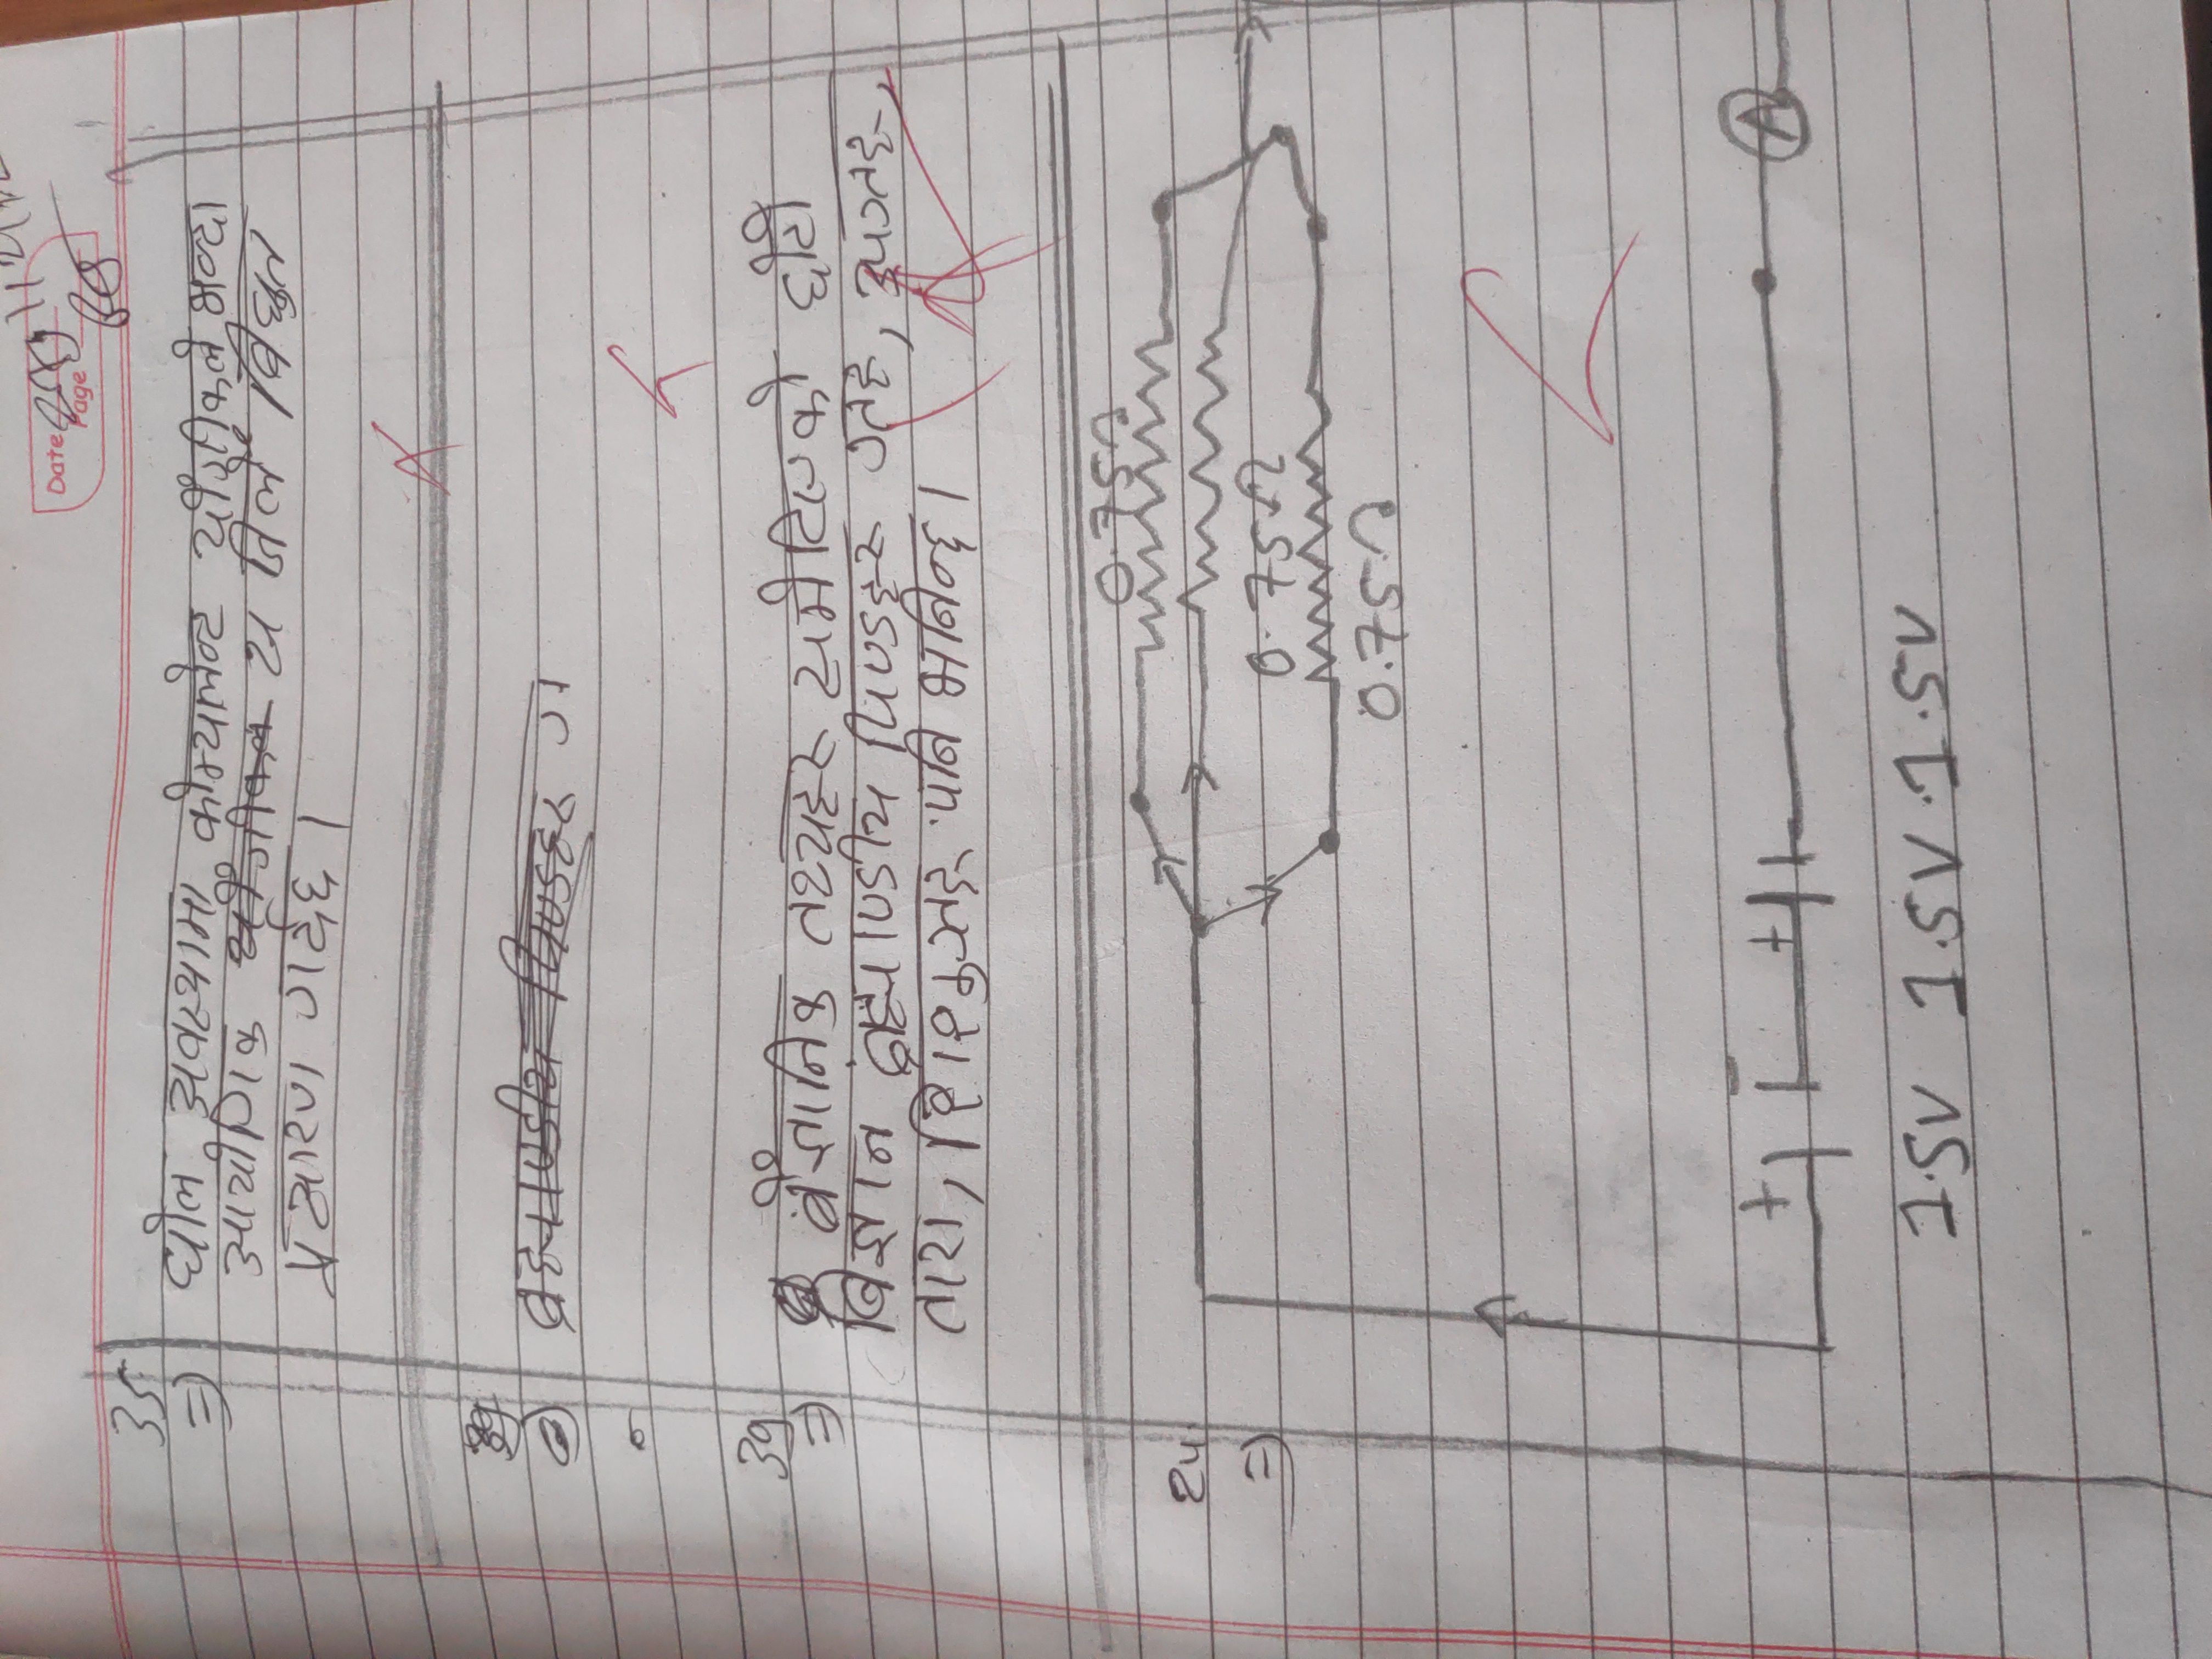 Date
Page
35
=) घोल अवस्थामा कोभ्यालेन्ट यौगीकले भन्दा
आयोगिक यौगीकल स जिलै बिधुत
प्रसारण गर्दछ।
39
=) ब्रह्माण्डीय पिण्डहरु ग
39
=) बैज्ञानिक तथ्यहरु समेटिएको छोटो
बिज्ञान ब्रह्माण्डीय पिण्डहरु ग्रह, उपग्रह,
तारा, शिशुग्रह पनि भनिन्छ।
0.75Ω
24
=)
0.75Ω
0.75Ω
+ - +
A
1.5V 1.5V 1.5V